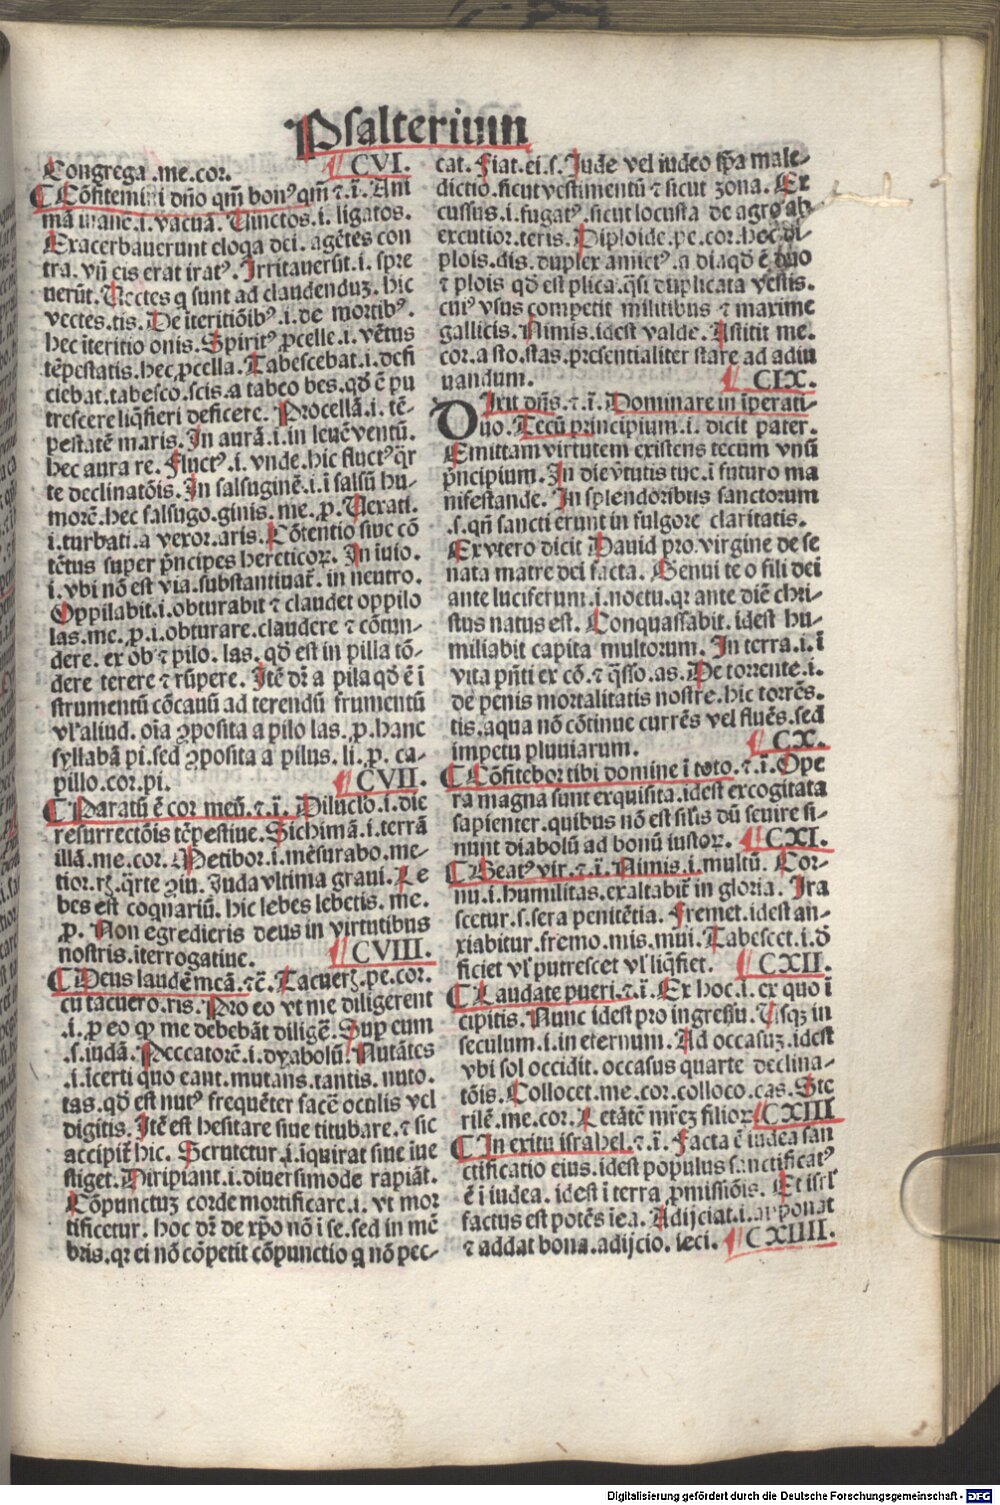 Psalterium
Congrega .me.cor. CVI.
Cōfitemini dño qm̄ bonꝰ qm̄ ⁊ ī. Ani
mā inane .i. vacuā. Uinctos .i. ligatos.
Exacerbauerunt eloqa dei .i. agētes con
tra. vn̄ eis erat iratꝰ. Irritauerūt .i. spre
uerūt. Uectes q sunt ad claudenduȝ. hic
vectes.tis. De īteritiōibꝰ .i. de mortibꝰ.
hec īteritio onis. Spiritꝰ ꝓcelle .i. vētus
tēpestatis. hec ꝓcella. Tabescebat .i. defi
ciebat. tabesco.scis. a tabeo bes. qđ ē pu
trescere liq̄fieri deficere. Procellā .i. tē-
pestatē maris. In aurā .i. in leuē ventū.
hec aura re. Fluctꝰ .i. vnde. hic fluctꝰ q̄r
te declinatōis. In salsuginē .i. ī salsū hu-
morē. hec salsugo.ginis. me. ꝓ. Uexati.
i. turbati. a vexor.aris. Cōtentio siue cō
tētus super p̄ncipes hereticoꝝ. In iuio.
i. vbi nō est via. substantiuat̄. in neutro.
Oppilabit .i. obturabit ⁊ claudet oppilo
las. me. ꝓ. i. obturare. claudere ⁊ cōtun-
dere. ex ob̄ ⁊ pilo. las. qđ est in pilla tō-
dere terere ⁊ rūpere. Itē dr̄ a pila qđ ē ī
strumentū cōcauū ad terendū frumentū
vl' aliud. oīa ꝯposita a pilo las. ꝓ. hanc
syllabā pi. sed ꝯposita a pilus. li. ꝓ. ca-
pillo.cor.pi. CVII.
Paratū ē cor meū. ⁊ ī. Diluclo .i. die
resurrectōis tēpestiue. Sichimā .i. terrā
illā. me. cor. Metibor .i. mēsurabo. me-
tior. rȝ. q̄rte ꝯiu. Iuda vltima graui. Le
bes est coquariū. hic lebes lebetis. me.
ꝓ. Non egredieris deus in virtutibus
nostris. īterrogatiue. CVIII.
Deus laudē meā. ⁊c̄. Tacuerȝ. pe. cor.
cū tacuero.ris. Pro eo vt me diligerent
.i. ꝓ eo qꝙ me debebāt diligē. Sup eum
.s. iudā. Peccatorē .i. dyabolū. Nutātes
.i. īcerti quo eant. mutans. tantis. nuto.
tas. qđ est nutꝰ frequēter facē oculis vel
digitis. Itē est hesitare siue titubare. ⁊ sic
accipit̄ hic. Scrutetur .i. iquirat siue īue
stiget. Diripiant .i. diuersimode rapiāt.
Cōpunctuȝ corde mortificare .i. vt mor
tificetur. hoc dr̄ de xp̄o nō ī se. sed in mē
bris. qr ei nō cōpetit cōpunctio q nō pec-
cat. Fiat. ei. s. Iude vel iudeo ip̄a male-
dictio. sicut vestimentū ⁊ sicut zona. Ex
cussus .i. fugatꝰ. sicut locusta de agro ab
excutior.teris. Diploide. pe. cor. hec di-
plois. dis. duplex amictꝰ. a dia qđ ē duo
⁊ plois qđ est plica. q̄si duplicata vestis.
cuiꝰ vsus competit militibus ⁊ maxime
gallicis. Nimis. idest valde. Astitit me.
cor. a sto. stas. presentialiter stare ad adiu
uandum. CIX.
Dixit dn̄s. ⁊ ī. Dominare in īperati-
uo. Tecū principium .i. dicit pater.
Emittam virtutem existens tecum vnū
p̄ncipium. In die v̄tutis tue .i. futuro ma
nifestande. In splendoribus sanctorum
.s. qn̄ sancti erunt in fulgore claritatis.
Ex vtero dicit Dauid pro. virgine de se
nata matre dei facta. Genui te o fili dei
ante luciferum .i. noctu. qr ante diē chri-
stus natus est. Conquassabit. idest hu-
miliabit capita multorum. In terra .i. ī
vita pn̄ti ex cō. ⁊ q̄sso. as. De torrente .i.
de penis mortalitatis nostre. hic torrēs.
tis. aqua nō cōtinue currēs vel fluēs. sed
impetu pluuiarum. CX.
Cōfitebor tibi domine ī toto. ⁊ ī. Ope
ra magna sunt exquisita. idest excogitata
sapienter. quibus nō est silīs dū seuire si-
nunt diabolū ad bonū iustoꝝ. CXI.
Beatꝰ vir. ⁊ ī. Nimis .i. multū. Cor-
nu .i. humilitas. exaltabit̄ in gloria. Ira
scetur. s. sera penitētia. Fremet. idest an-
xiabitur. fremo. mis. mui. Tabescet .i. đ
ficiet vl' putrescet vl' liq̄fiet. CXII.
Laudate pueri. ⁊ ī. Ex hoc .i. ex quo ī
cipitis. Nunc idest pro ingressu. Usqȝ in
seculum .i. in eternum. Ad occasuȝ. idest
vbi sol occidit. occasus quarte declina-
tōis. Collocet. me. cor. colloco. cas. Ste
rilē. me. cor. Letātē mr̄eȝ filioꝝ. CXIII
In exitu israhel. ⁊ ī. Facta ē iudea san
ctificatio eius. idest populus sanctificatꝰ
ē ī iudea. idest ī terra ꝓmissiōis. Et isrl'
factus est potēs ī ea. Adijciat .i. apponat
⁊ addat bona. adijcio. ieci. CXIIII.
Digitalisierung gefördert durch die Deutsche Forschungsgemeinschaft - DFG